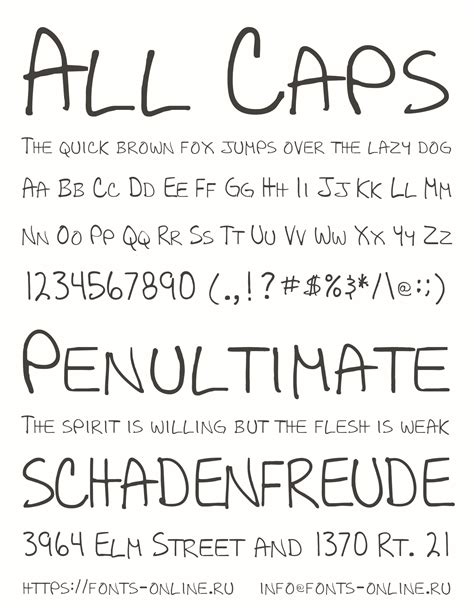 All Caps
The quick brown fox jumps over the lazy dog
Aa Bb Cc Dd Ee Ff Gg Hh Ii Jj Kk Ll Mm
Nn Oo Pp Qq Rr Ss Tt Uu Vv Ww Xx Yy Zz
1234567890 (.,!?#$%&*/\@:;)
Penultimate
The spirit is willing but the flesh is weak
SCHADENFREUDE
3964 Elm Street and 1370 Rt. 21
https://fonts-online.ru info@fonts-online.ru